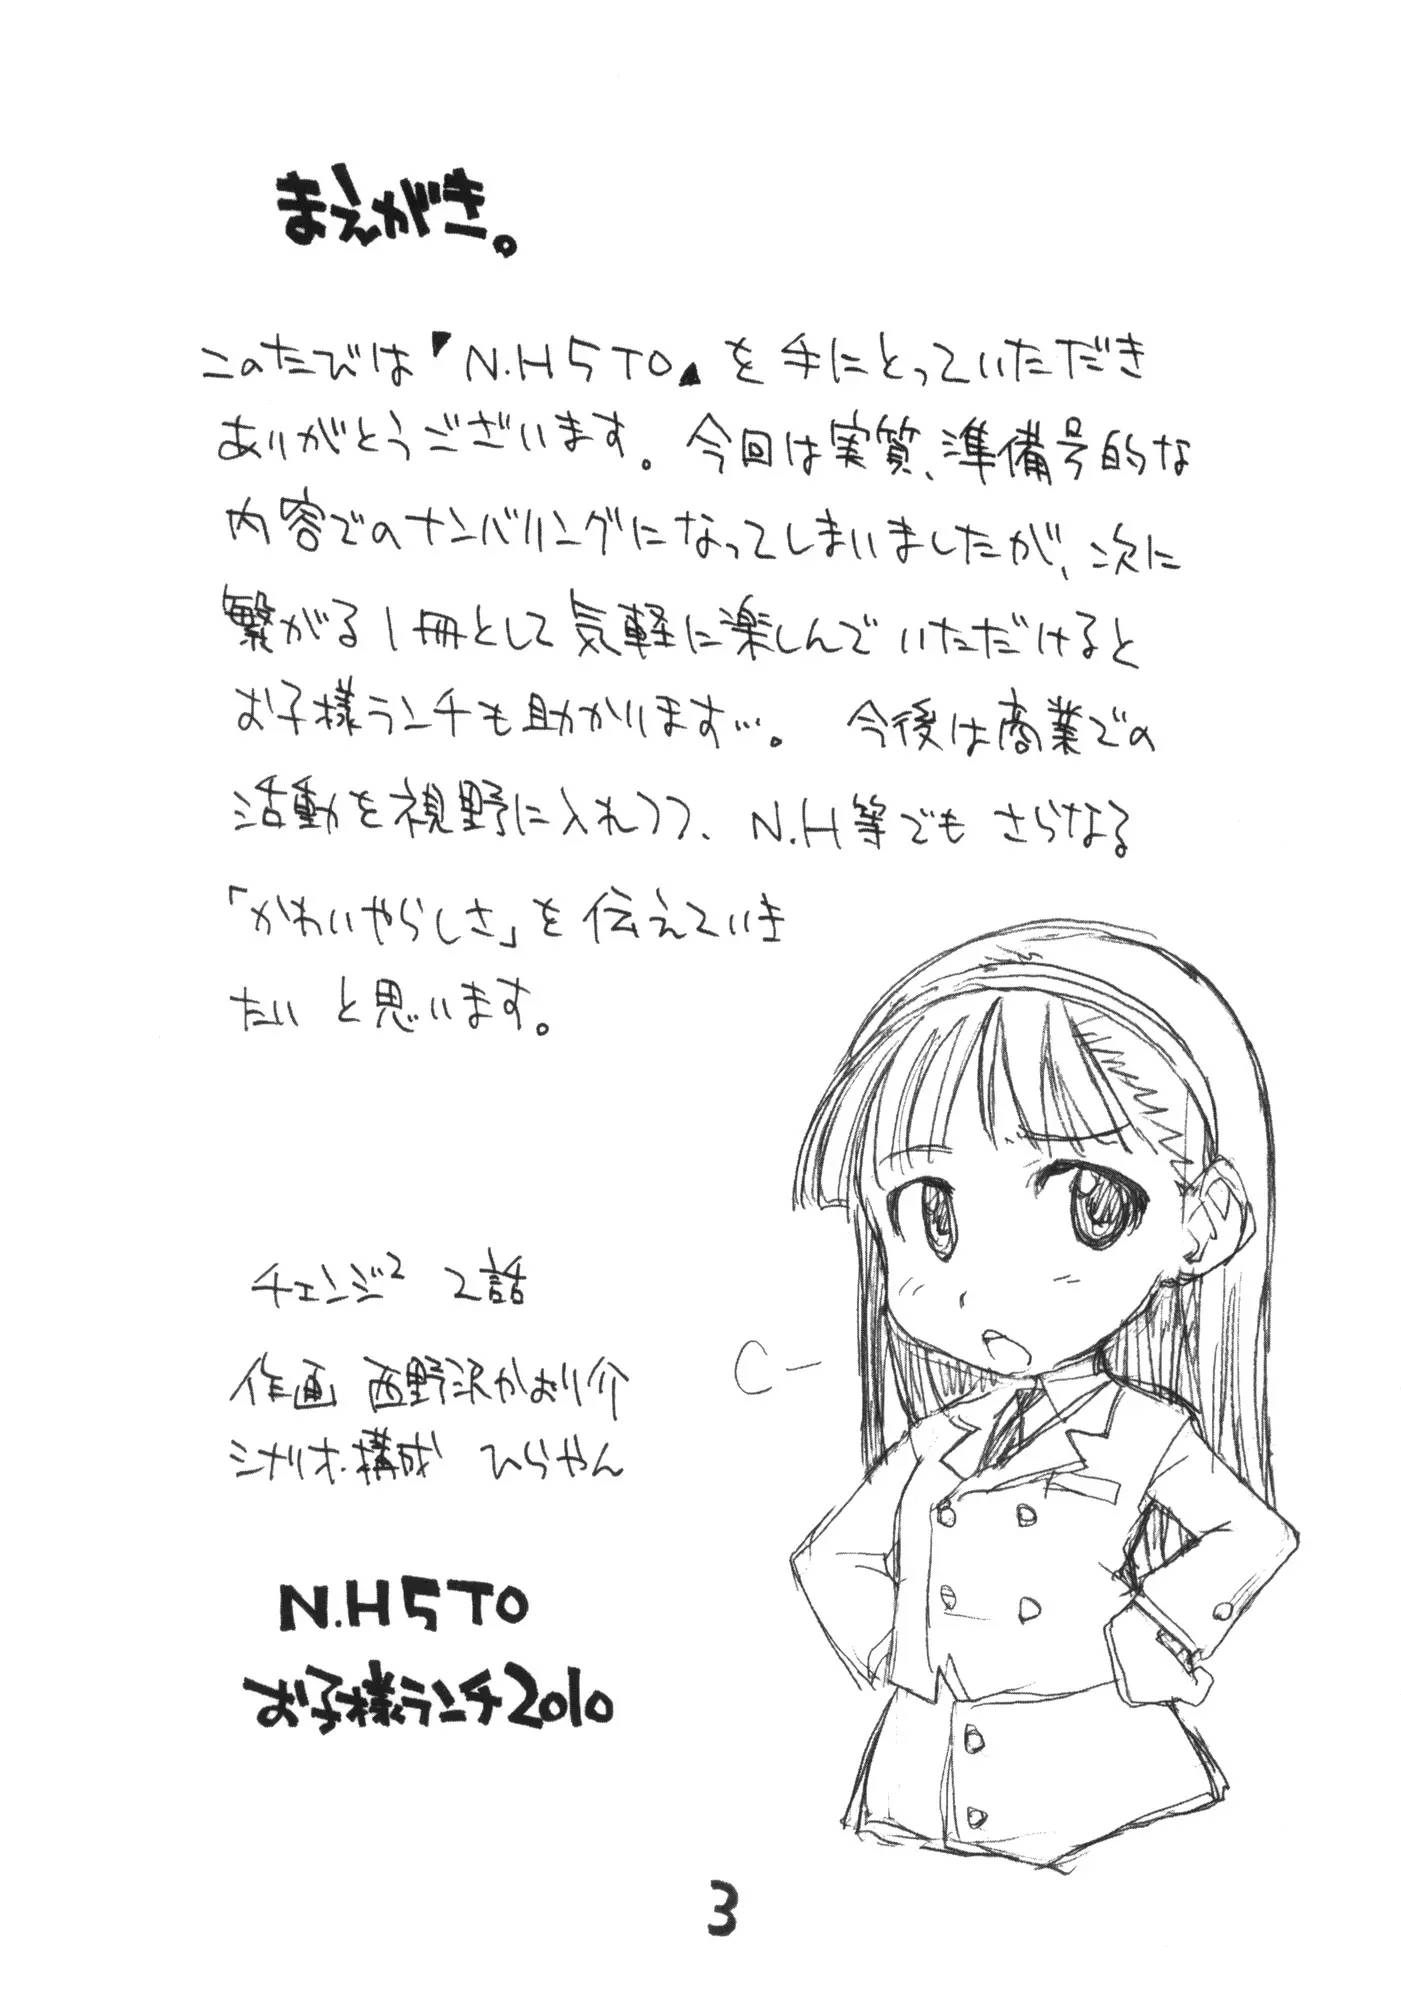 まえがき。
このたびは『N.H5TO』を手にとっていただき
ありがとうございます。今回は実質、準備号的な
内容でのナンバリングになってしまいましたが、次に
繋がる1冊として気軽に楽しんでいただけると
お子様ランチも助かります…。 今後は商業での
活動を視野に入れつつ、N.H等でもさらなる
「かわいやらしさ」を伝えていき
たいと思います。
チェンジ² 2話
作画 西野沢かおり介
シナリオ・構成 ひらやん
N.H5TO
お子様ランチ2010
3